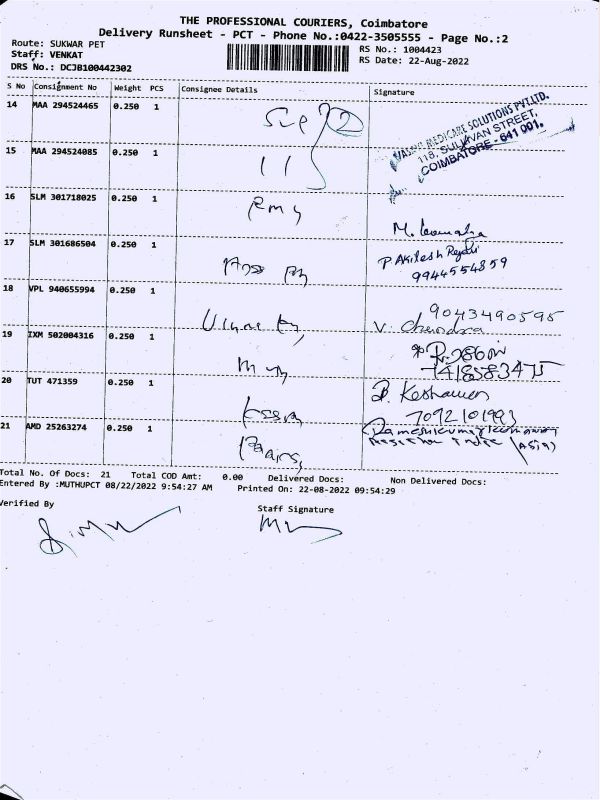 THE PROFESSIONAL COURIERS, Coimbatore
Delivery Runsheet - PCT - Phone No.:0422-3505555 - Page No.:2
Route: SUKWAR PET
RS No.: 1004423
Staff: VENKAT
RS Date: 22-Aug-2022
DRS No.: DCJB100442302
S No Consignment No Weight PCS Consignee Details Signature
14 MAA 294524465 0.250 1
MEDICARE SOLUTIONS PVT.LTD.
118, SULLIVAN STREET,
COIMBATORE - 641 001.
15 MAA 294524085 0.250 1
16 SLM 301718025 0.250 1
17 SLM 301686504 0.250 1
P Akilesh
9944554859
18 VPL 940655994 0.250 1
9043490595
V. Chandra
19 IXM 502004316 0.250 1
7418583475
20 TUT 471359 0.250 1
B. Keshavan
7092101993
21 AMD 25263274 0.250 1
Total No. Of Docs: 21 Total COD Amt: 0.00 Delivered Docs: Non Delivered Docs:
Entered By :MUTHUPCT 08/22/2022 9:54:27 AM Printed On: 22-08-2022 09:54:29
Verified By
Staff Signature